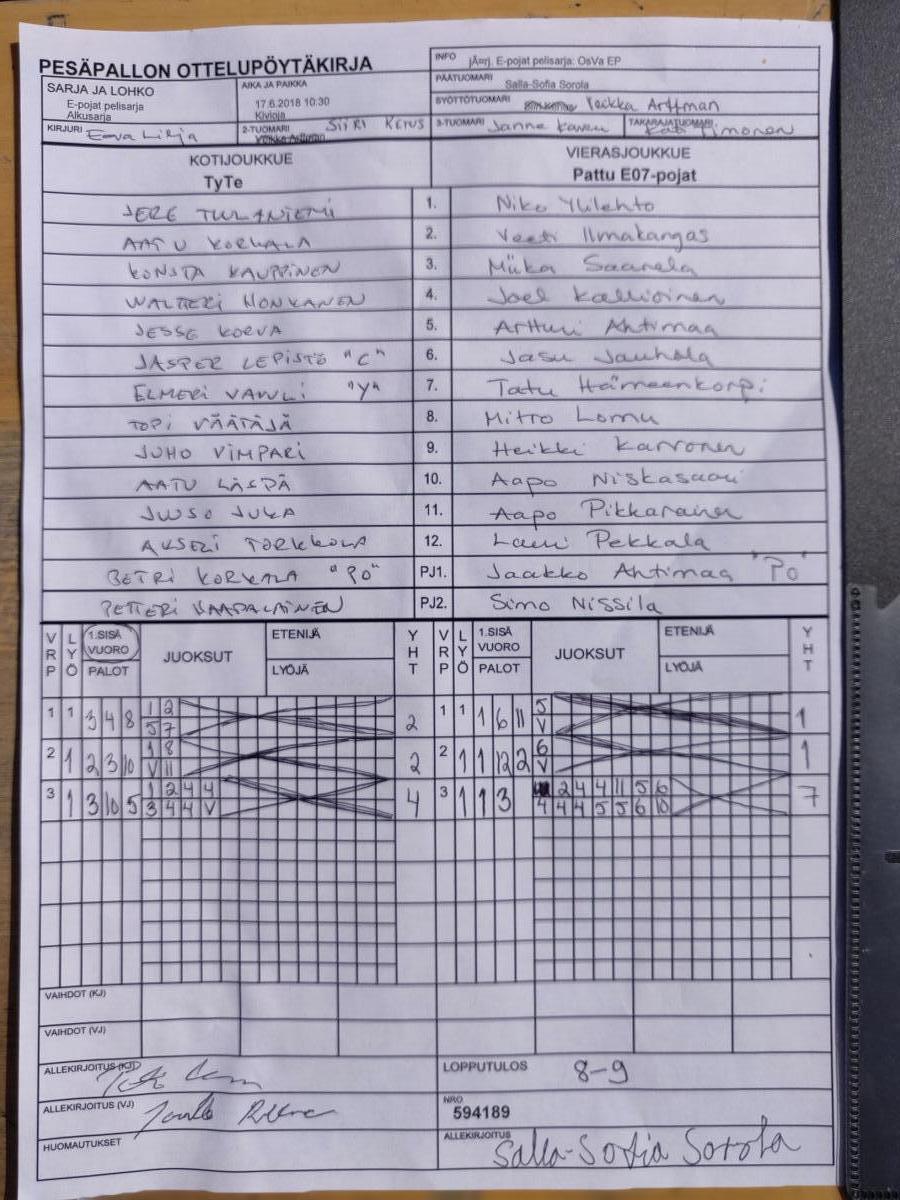 PESÄPALLON OTTELUPÖYTÄKIRJA
INFO jÄ¤rj. E-pojat pelisarja: OsVa EP
SARJA JA LOHKO
E-pojat pelisarja
Alkusarja
AIKA JA PAIKKA
17.6.2018 10:30
Kivioja
PÄÄTUOMARI Salla-Sofia Sorola
SYÖTTÖTUOMARI Veikka Arffman
KIRJURI Eeva Lilja
2-TUOMARI SIIRI KETUS
3-TUOMARI Janne
TAKARAJATUOMARI Timonen
KOTIJOUKKUE
TyTe
VIERASJOUKKUE
Pattu E07-pojat
JERE TUULANIEMI 1. Niko Ylilehto
AATU KORKALA 2. Veeti Ilmakangas
KONSTA KAUPPINEN 3. Miika Saarela
WALTTERI HONKANEN 4. Joel Kallioinen
JESSE KORVA 5. Artturi Ahtimaa
JASPER LEPISTÖ "C" 6. Jasu Jauhola
ELMERI "Y" 7. Tatu Hämeenkorpi
TOPI VÄÄTÄJÄ 8. Mitro Lomu
JUHO VIMPARI 9. Heikki Karvonen
AATU LÄSPÄ 10. Aapo Niskasaari
JUUSO JUKA 11. Aapo Pikkarainen
AKSELI TORKKOLA 12. Lauri Pekkala
PETRI KORKALA "PO" PJ1. Jaakko Ahtimaa "Po"
PETTERI KAAPALAINEN PJ2. Simo Nissilä
VRP LYÖ 1.SISÄ VUORO PALOT JUOKSUT ETENIJÄ LYÖJÄ YHT VRP LYÖ 1.SISÄ VUORO PALOT JUOKSUT ETENIJÄ LYÖJÄ YHT
1 1 3 4 8 1 2 2 1 1 1 6 11 5 1
5 7 V
2 1 2 3 10 1 8 2 2 1 1 12 2 6 1
V 11 V
3 1 3 10 5 1 2 4 4 4 3 1 1 3 2 4 4 11 5 6 7
3 4 4 V 4 4 4 5 5 6 10
VAIHDOT (KJ)
VAIHDOT (VJ)
ALLEKIRJOITUS (KJ)
LOPPUTULOS 8-9
ALLEKIRJOITUS (VJ)
NRO
594189
HUOMAUTUKSET
ALLEKIRJOITUS Salla-Sofia Sorola